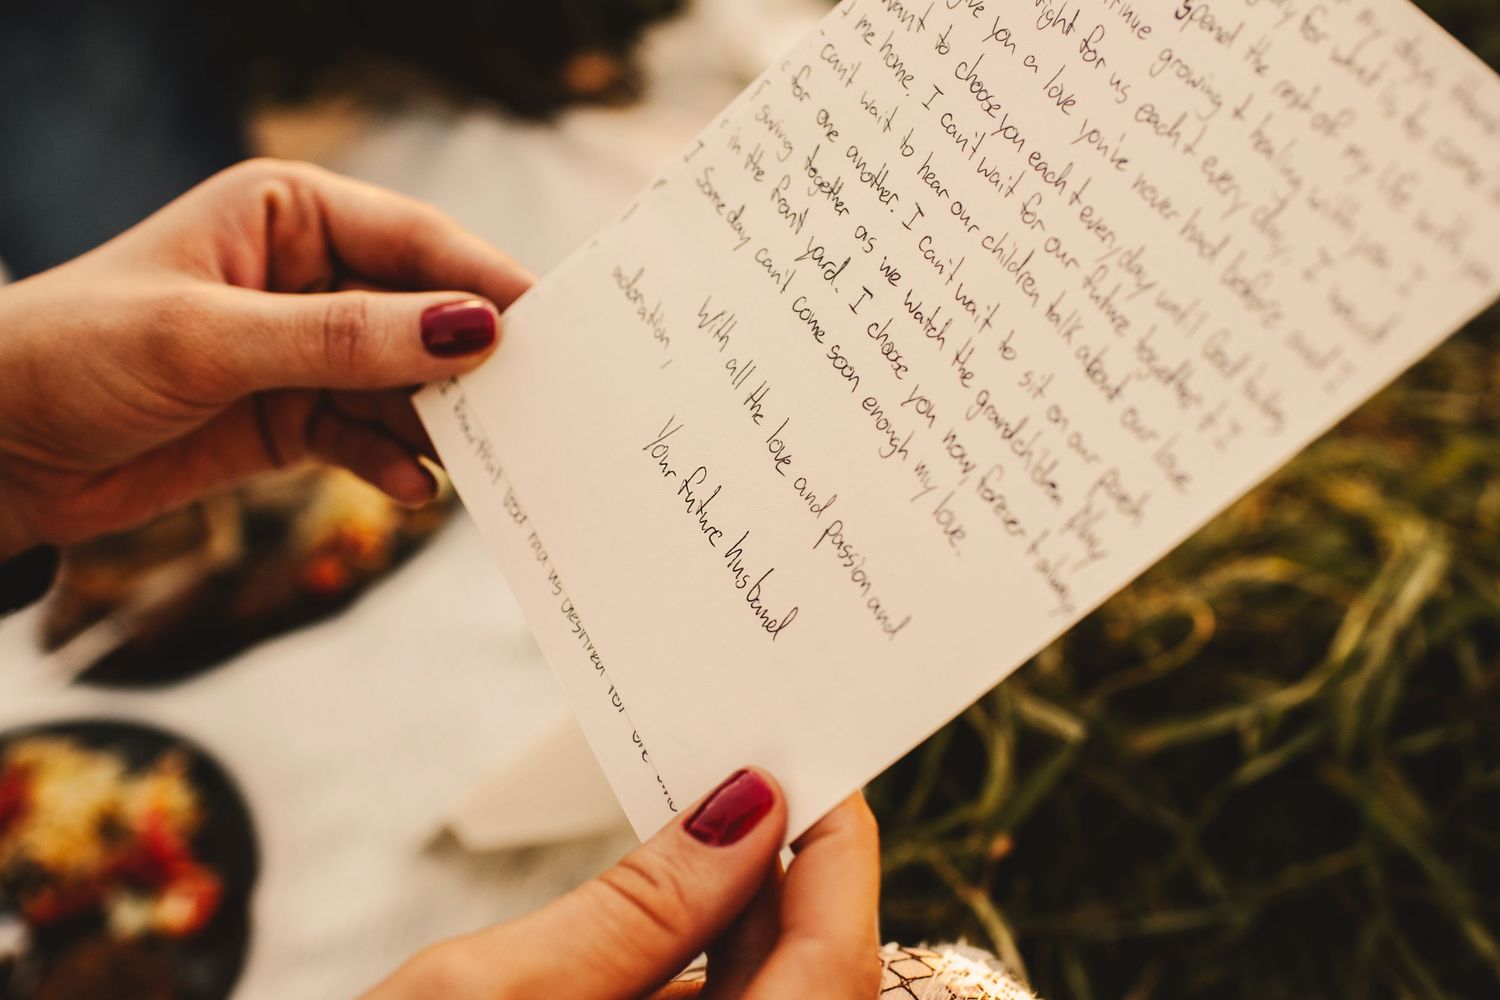 my days
for what is to come
spend the rest of my life with you
continue growing & healing with you. I
right for us each & every day. I want
give you a love you've never had before and I
want to choose you each & every day until God takes
me home. I can't wait for our future together & I
can't wait to hear our children talk about our love
for one another. I can't wait to sit on our porch
swing together as we watch the grandchildren play
in the front yard. I choose you now, forever & always
Someday can't come soon enough my love.
With all the love and passion and
adoration,
Your future husband
I knew that God had us destined for one